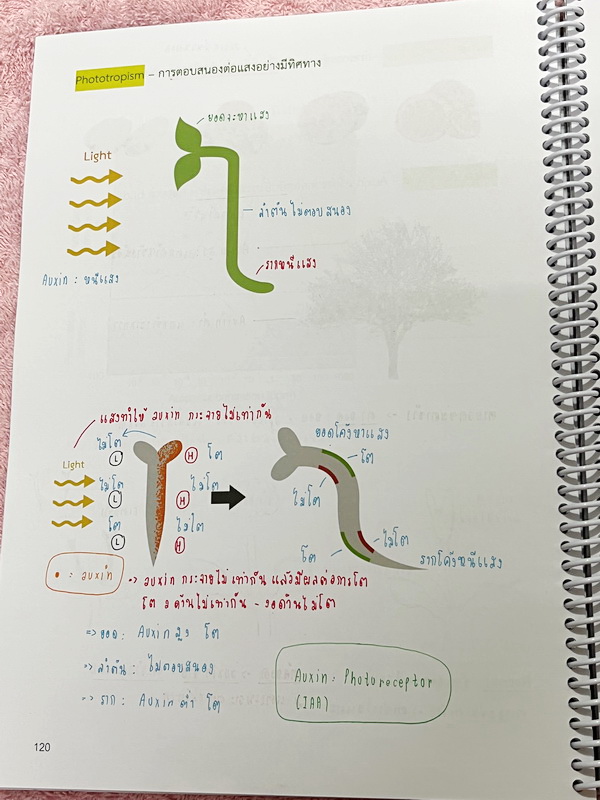 Phototropism – การตอบสนองต่อแสงอย่างมีทิศทาง
ยอดจะหาแสง
Light
ลำต้นไม่ตอบสนอง
รากหนีแสง
Auxin : หนีแสง
แสงทำให้ auxin กระจายไม่เท่ากัน
ไม่โต
L
H
โต
Light
ไม่โต
L
H
ไม่โต
โต
L
H
ไม่โต
ยอดโค้งหาแสง
โต
ไม่โต
ไม่โต
โต
รากโค้งหนีแสง
• = auxin
=> auxin กระจายไม่เท่ากัน แล้วมีผลต่อการโต
โต 2 ด้านไม่เท่ากัน - งอด้านไม่โต
=> ยอด : Auxin สูง โต
=> ลำต้น : ไม่ตอบสนอง
=> ราก : Auxin ต่ำ โต
Auxin : Photoreceptor
(IAA)
120